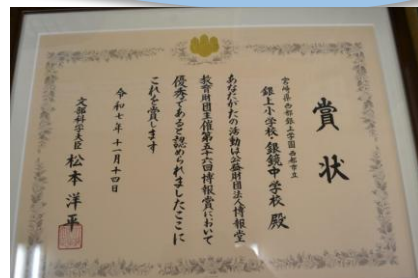 賞状
宮崎県西都銀上学園 西都市立
銀上小学校・銀鏡中学校 殿
あなたがたの活動は公益財団法人博報堂
教育財団主催第五十六回博報賞において
優秀であると認められましたここに
これを賞します
令和七年 十一月十四日
文部科学大臣 松本洋平